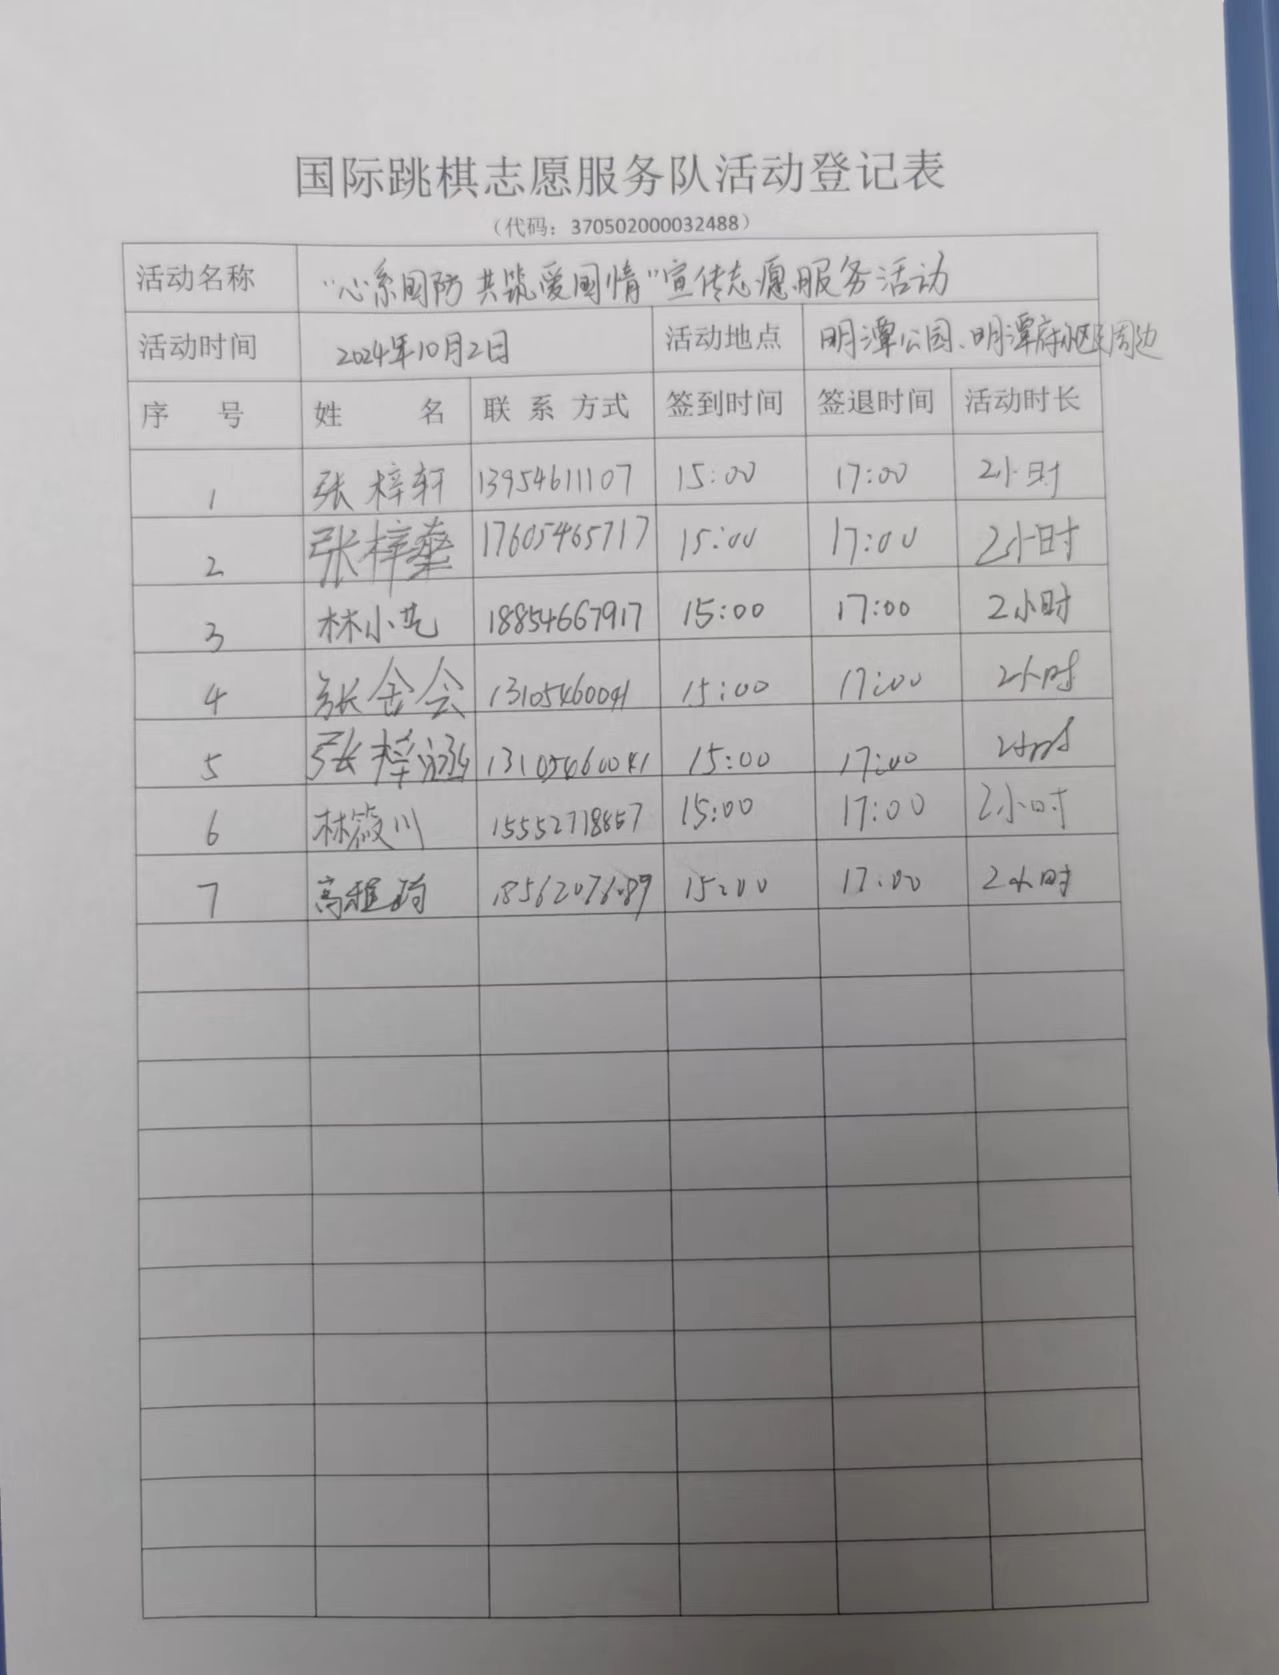 国际跳棋志愿服务队活动登记表
（代码：370502000032488）
活动名称 “心系国防 共筑爱国情”宣传志愿服务活动
活动时间 2024年10月2日 活动地点 明潭公园、明潭府小区周边
序 号 姓 名 联系方式 签到时间 签退时间 活动时长
1 张梓轩 13954611107 15:00 17:00 2小时
2 张梓燊 17605465717 15:00 17:00 2小时
3 林小艺 18854667917 15:00 17:00 2小时
4 张会 13105460041 15:00 17:00 2小时
5 张梓涵 13105460041 15:00 17:00 2小时
6 林筱川 15552718857 15:00 17:00 2小时
7 高 15:00 17:00 2小时